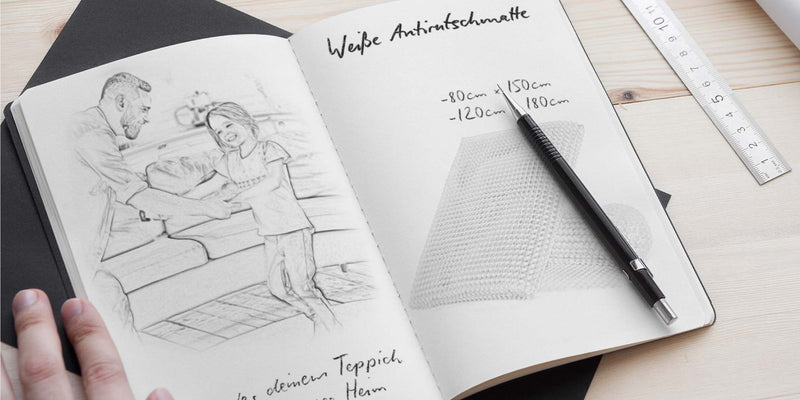 Weiße Antirutschmatte
-80cm x 150cm
-120cm 180cm
deinem Teppich
Heim
10
9
8
7
6
5
4
3
2
1